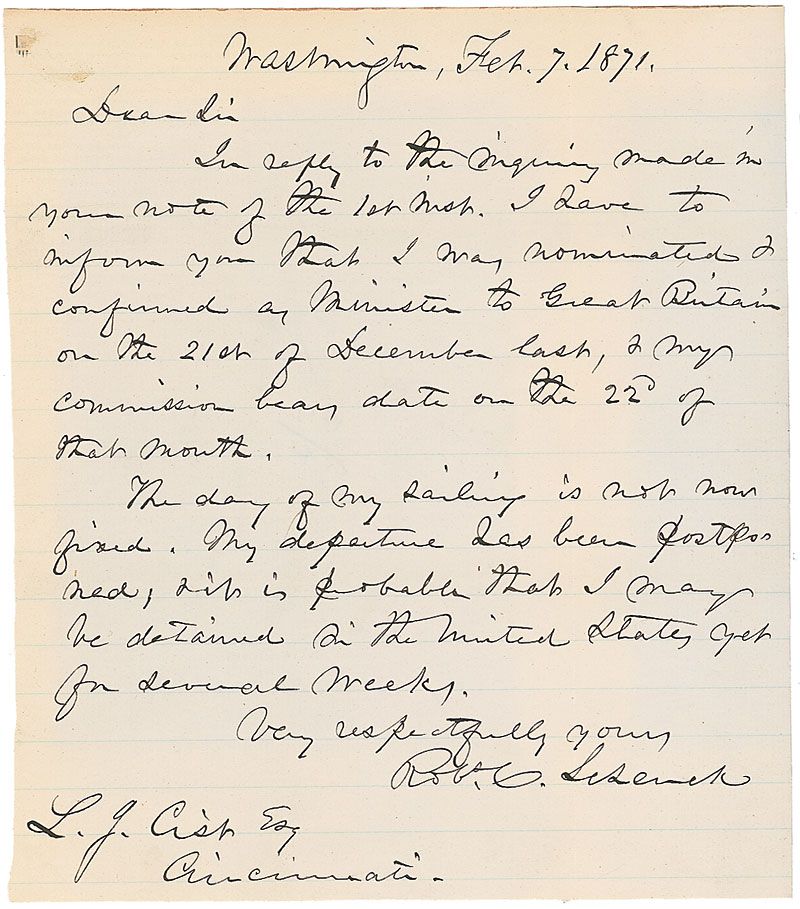 Washington, Feb. 7. 1871.
Dear Sir
In reply to the inquiry made in
your note of the 1st inst. I have to
inform you that I was nominated &
confirmed as Minister to Great Britain
on the 21st of December last, & my
commission bears date on the 22d of
that month.
The day of my sailing is not now
fixed. My departure has been postpo-
ned; & it is probable that I may
be detained in the United States yet
for several weeks.
Very respectfully yours
Robt. C. Schenck
L. J. Cist Esq
Cincinnati.